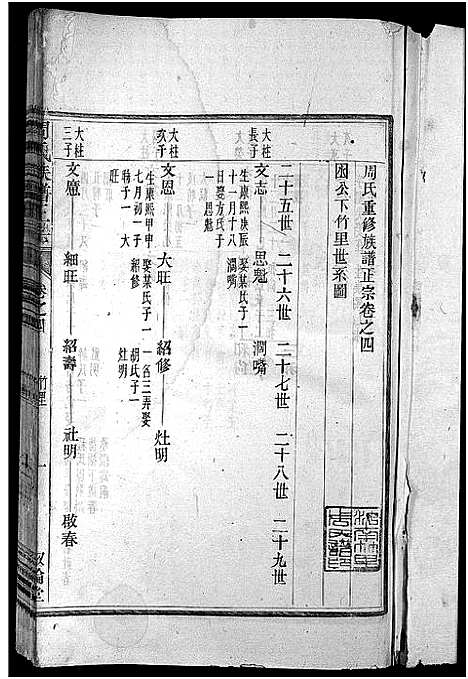 周氏重修族譜正宗卷之四
困公下竹里世系圖
二十五世 二十六世 二十七世 二十八世 二十九世
大柱長子 文志 思魁 潤嘴
生康熙庚辰
十一月十八 潤嘴
日娶方氏子
一 思魁
娶某氏子一
大柱次子 文恩 大旺 紹修 灶明
生康熙甲申
七月初一子
大旺
娶某氏子一
紹修
一名三弄娶
胡氏子一
灶明
大柱三子 文應 細旺 紹壽 社明 啟春
卷之四
竹里
一